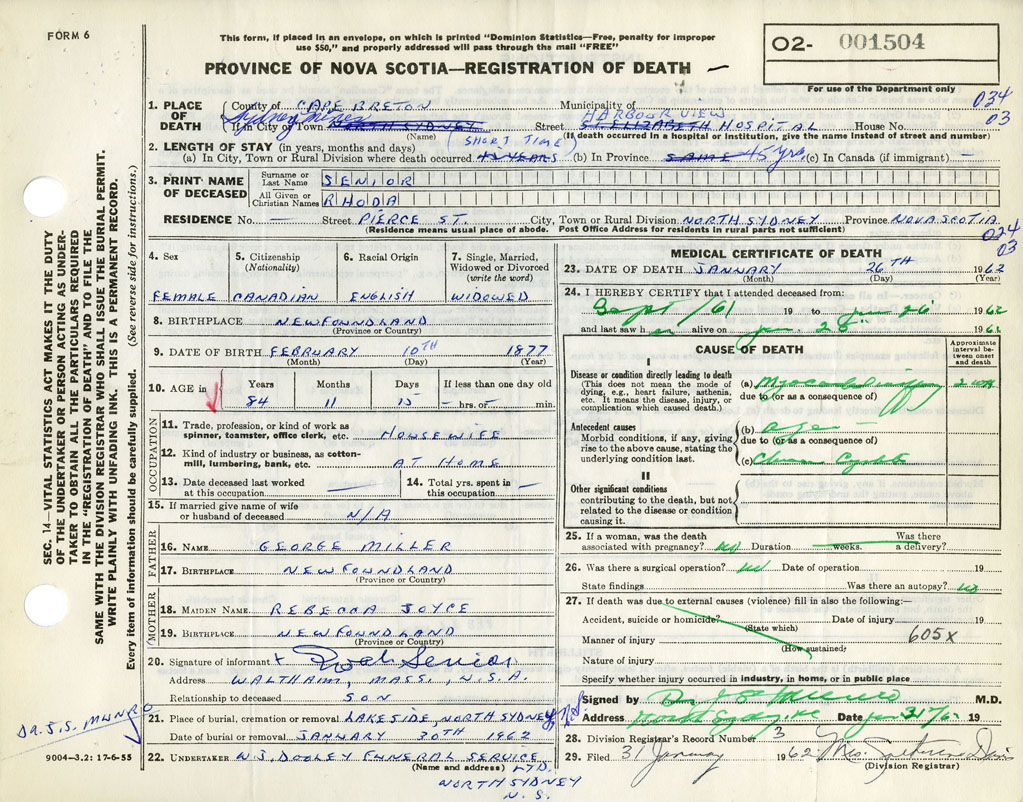 FORM 6
This form, if placed in an envelope, on which is printed "Dominion Statistics—Free, penalty for improper
use $50," and properly addressed will pass through the mail "FREE"
PROVINCE OF NOVA SCOTIA—REGISTRATION OF DEATH —
O2- 001504
For use of the Department only
034
03
1. PLACE OF DEATH
County of CAPE BRETON Municipality of
Sydney Mines HARBOUR VIEW
If in City or Town NORTH SYDNEY Street ST. ELIZABETH HOSPITAL House No.
(Name) (If death occurred in a hospital or institution, give the name instead of street and number)
2. LENGTH OF STAY (in years, months and days) (SHORT TIME)
(a) In City, Town or Rural Division where death occurred 45 YEARS (b) In Province SAME 45 yrs. (c) In Canada (if immigrant) —
3. PRINT NAME OF DECEASED
Surname or Last Name SENIOR
All Given or Christian Names RHODA
RESIDENCE No. — Street PIERCE ST. City, Town or Rural Division NORTH SYDNEY Province NOVA SCOTIA
(Residence means usual place of abode. Post Office Address for residents in rural parts not sufficient)
024
03
4. Sex
FEMALE
5. Citizenship (Nationality)
CANADIAN
6. Racial Origin
ENGLISH
7. Single, Married, Widowed or Divorced (write the word)
WIDOWED
8. BIRTHPLACE NEWFOUNDLAND
(Province or Country)
9. DATE OF BIRTH FEBRUARY 10TH 1877
(Month) (Day) (Year)
10. AGE in Years Months Days If less than one day old
84 11 15 — hrs. or — min.
OCCUPATION
11. Trade, profession, or kind of work as
spinner, teamster, office clerk, etc. HOUSEWIFE
12. Kind of industry or business, as cotton-
mill, lumbering, bank, etc. AT HOME
13. Date deceased last worked
at this occupation —
14. Total yrs. spent in
this occupation —
15. If married give name of wife
or husband of deceased N/A
FATHER
16. NAME GEORGE MILLER
17. BIRTHPLACE NEWFOUNDLAND
(Province or Country)
MOTHER
18. MAIDEN NAME REBECCA JOYCE
19. BIRTHPLACE NEWFOUNDLAND
(Province or Country)
20. Signature of informant x Senior
Address WALTHAM, MASS., U.S.A.
Relationship to deceased SON
21. Place of burial, cremation or removal LAKESIDE, NORTH SYDNEY, N.S.
Date of burial or removal JANUARY 30TH 1962
22. UNDERTAKER W.J. DOOLEY FUNERAL SERVICE LTD.
(Name and address)
NORTH SYDNEY
N. S.
MEDICAL CERTIFICATE OF DEATH
23. DATE OF DEATH JANUARY 26TH 1962
(Month) (Day) (Year)
24. I HEREBY CERTIFY that I attended deceased from:
Sept/61 19 to Jan 26 1962
and last saw h alive on Jan. 25 196
CAUSE OF DEATH
Approximate interval between onset and death
I
Disease or condition directly leading to death
(This does not mean the mode of
dying, e.g., heart failure, asthenia,
etc. It means the disease, injury, or
complication which caused death.)
(a) Myocardial
due to (or as a consequence of)
Antecedent causes
Morbid conditions, if any, giving
rise to the above cause, stating the
underlying condition last.
(b) age
due to (or as a consequence of)
(c) Chronic Cystitis
II
Other significant conditions
contributing to the death, but not
related to the disease or condition
causing it.
25. If a woman, was the death Was there
associated with pregnancy? No Duration weeks. a delivery?
26. Was there a surgical operation? No Date of operation 19
State findings Was there an autopsy? No
27. If death was due to external causes (violence) fill in also the following:—
Accident, suicide or homicide? Date of injury 19
(State which)
Manner of injury 605x
(How sustained)
Nature of injury
Specify whether injury occurred in industry, in home, or in public place
Signed by M.D.
Address North Sydney Date Jan 31 19
28. Division Registrar's Record Number 3
29. Filed 31 January 1962 Mrs.
(Division Registrar)
SEC. 14—VITAL STATISTICS ACT MAKES IT THE DUTY
OF THE UNDERTAKER OR PERSON ACTING AS UNDER-
TAKER TO OBTAIN ALL THE PARTICULARS REQUIRED
IN THE "REGISTRATION OF DEATH" AND TO FILE THE
SAME WITH THE DIVISION REGISTRAR WHO SHALL ISSUE THE BURIAL PERMIT.
WRITE PLAINLY WITH UNFADING INK. THIS IS A PERMANENT RECORD.
Every item of information should be carefully supplied. (See reverse side for instructions.)
DR. J. S. MUNRO
9004—3.2: 17-6-55